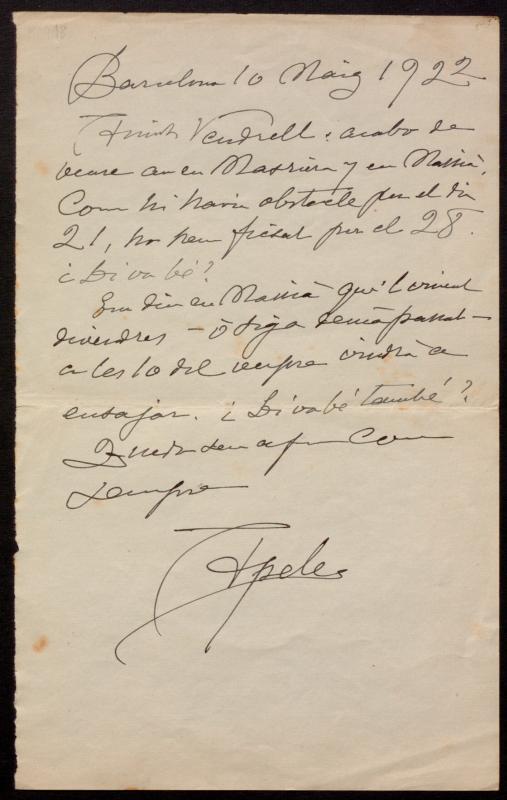 Barcelona 10 Maig 1922
Amich Vendrell: acabo de
veure an en Masriera y en Massià.
Com hi havia obstacle per el dia
21, ho hem fixat per el 28.
¿Li va bé?
Em diu en Massià qu'l vinent
divendres — ò siga demà passat —
a les 10 del vespre vindrà a
ensajar. ¿Li va bé també?
Queda seu afm com
sempre
Apeles